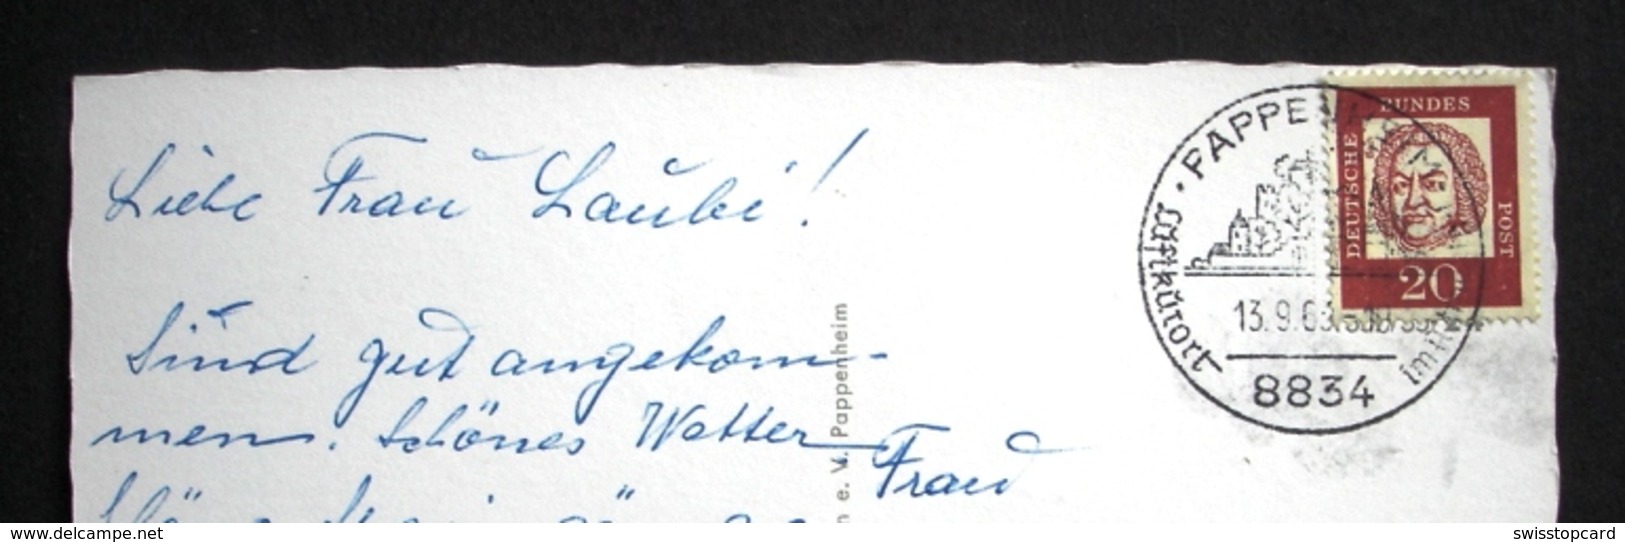 Liebe Frau Laubi!
Sind gut angekom-
men. Schönes Wetter
Frau
n e. V. Pappenheim
· PAPPENH
Luftkurort
im
13.9.63
8834
DEUTSCHE
BUNDES
POST
20
www.delcampe.net
swisstopcard